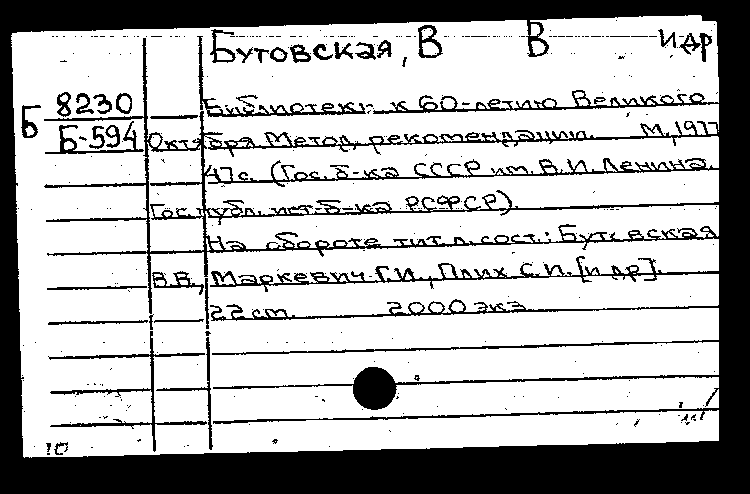 Бутовская, В В и др
Б 8230
Б-594
Библиотеки к 60-летию Великого
Октября Метод. рекомендации. М., 1977
47с. (Гос. б-ка СССР им. В. И. Ленина.
Гос. публ. ист. б-ка РСФСР).
На обороте тит. л. сост.: Бутовская
В.В., Маркевич Г.И., Плих С.И. [и др].
22 cm. 2000 экз
10